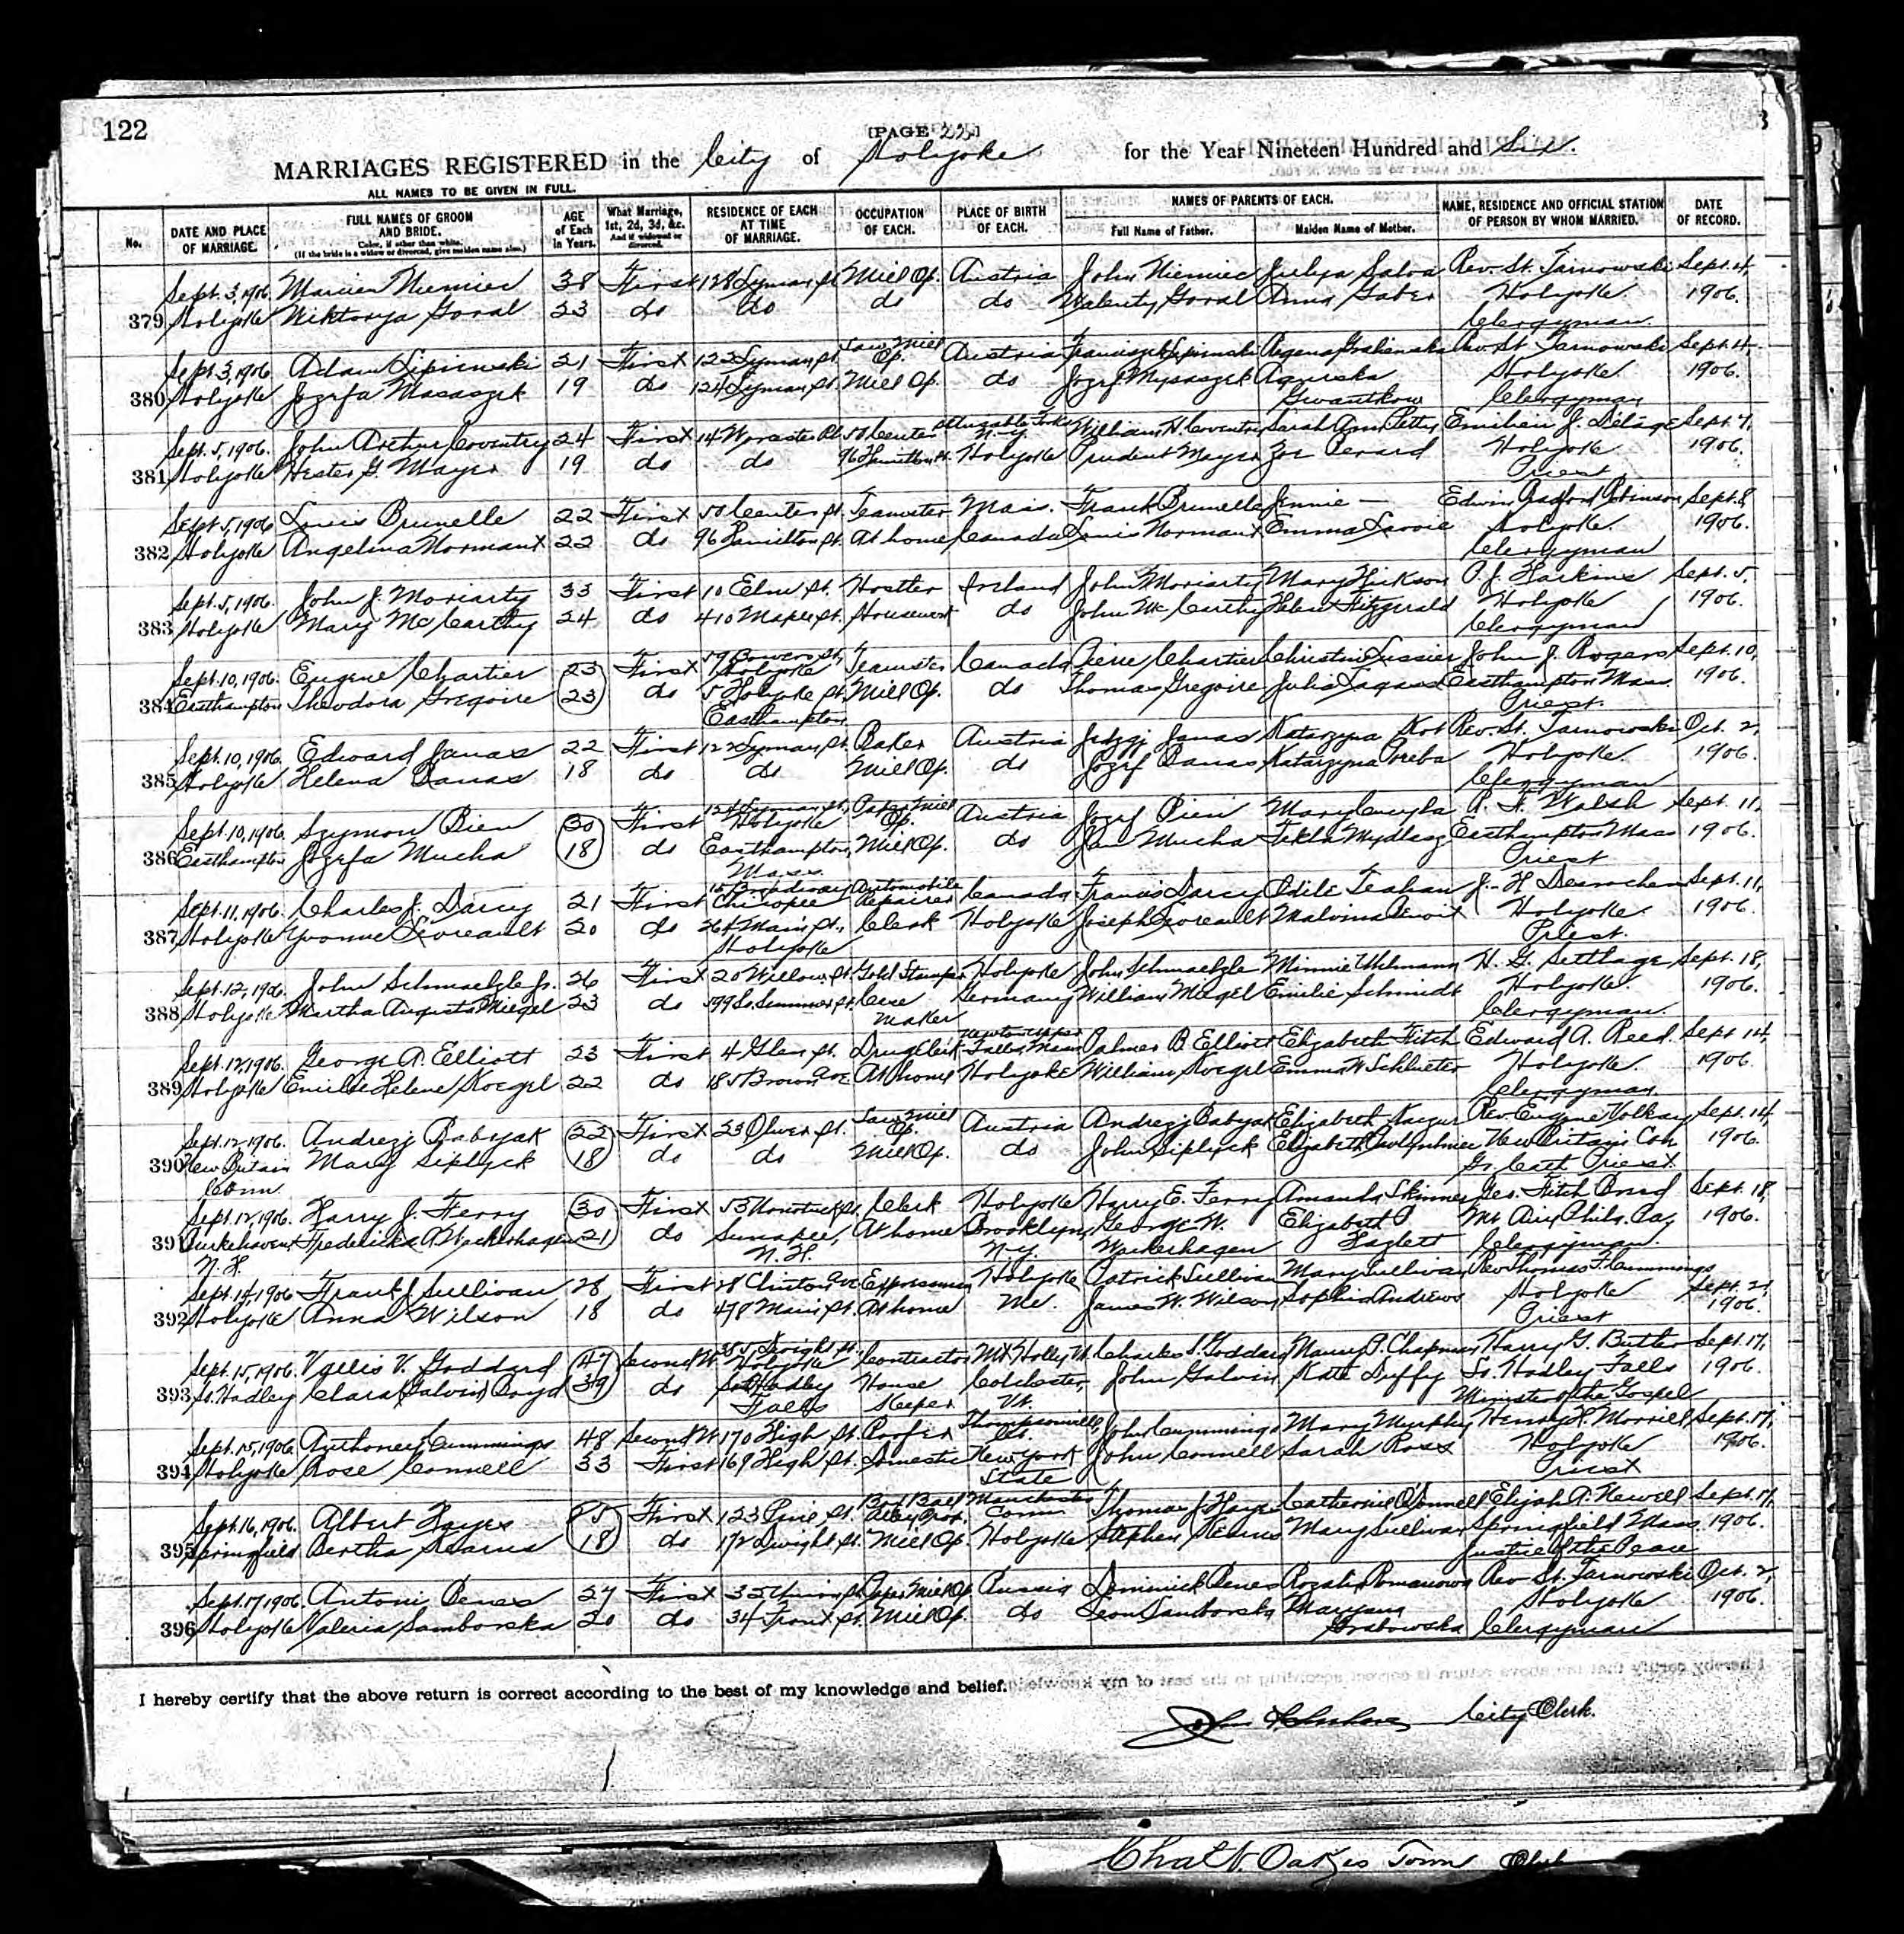 122
[PAGE 22]
MARRIAGES REGISTERED in the City of Holyoke for the Year Nineteen Hundred and Six.
ALL NAMES TO BE GIVEN IN FULL.
No.
DATE AND PLACE OF MARRIAGE.
FULL NAMES OF GROOM AND BRIDE.
Color, if other than white.
(If the bride is a widow or divorced, give maiden name also.)
AGE of Each in Years.
What Marriage, 1st, 2d, 3d, &c. And if widowed or divorced.
RESIDENCE OF EACH AT TIME OF MARRIAGE.
OCCUPATION OF EACH.
PLACE OF BIRTH OF EACH.
NAMES OF PARENTS OF EACH.
Full Name of Father.
Maiden Name of Mother.
NAME, RESIDENCE AND OFFICIAL STATION OF PERSON BY WHOM MARRIED.
DATE OF RECORD.
Sept. 3, 1906. 38 First 128 Lyman St. Mill Op. Austria John Niemiec Julya Rev. St. Tarnowski Sept. 4,
379 Holyoke Wiktorya Goral 23 do do do do Walenty Goral Anna Holyoke. 1906.
Clergyman.
Sept. 3, 1906. Adam 21 First 122 Lyman St. Saw Mill Op. Austria Rev. St. Tarnowski Sept. 4,
380 Holyoke Jozefa 19 do 124 Lyman St. Mill Op. do Jozef Holyoke 1906.
Clergyman
Sept. 5, 1906. John Arthur Coventry 24 First 14 Worcester Pl. 50 Center N.Y. William H. Coventry Sarah Ann Emilien J. Sept. 7,
381 Holyoke Hester G. Mayer 19 do do 96 Hamilton St. Holyoke Prudent Mayer Zoe Holyoke 1906.
Priest
Sept. 5, 1906 Louis Brunelle 22 First 50 Center St. Teamster Mass. Frank Brunelle Jennie — Edwin Bradford Robinson Sept. 8,
382 Holyoke Angelina Normant 22 do 96 Hamilton St. At home Canada Louis Normant Emma Holyoke. 1906.
Clergyman
Sept. 5, 1906. John J. Moriarty 33 First 10 Elm St. Hostler Ireland John Moriarty Mary Hickson P. J. Harkins Sept. 5,
383 Holyoke Mary McCarthy 24 do 410 Maple St. Housework do John McCarthy Helen Fitzgerald Holyoke 1906.
Clergyman
Sept. 10, 1906. Eugene Chartier 23 First 59 Bowers St. Holyoke Teamster Canada Pierre Chartier Christine Lussier John J. Rogers Sept. 10,
384 Easthampton Theodora Gregoire 23 do 5 Holyoke St. Mill Op. do Thomas Gregoire Julia Easthampton Mass. 1906.
Easthampton Priest.
Sept. 10, 1906. Edward Janas 22 First 122 Lyman St. Baker Austria Janas Katarzyna Kot Rev. St. Tarnowski Oct. 2,
385 Holyoke Helena Banas 18 do do Mill Op. do Jozef Banas Katarzyna Holyoke. 1906.
Clergyman
Sept. 10, 1906. Szymon Pien 30 First 124 Lyman St. Holyoke Paper Mill Op. Austria Jozef Pien Mary Sept. 11,
386 Easthampton Jozefa Mucha 18 do Easthampton, Mill Op. do Jan Mucha Tekla Easthampton Mass 1906.
Mass. Priest
Sept. 11, 1906. Charles J. Darcy 21 First 15 Broadway Chicopee Automobile Repairer Canada Francis Darcy Odile J. H. Sept. 11,
387 Holyoke Yvonne 20 do 264 Main St., Clerk Holyoke Joseph Malvina Benoit Holyoke 1906.
Holyoke Priest.
Sept. 12, 1906. John Schmaelzle Jr. 26 First 20 Willow St. Gold Stamper Holyoke John Schmaelzle Minnie Uhlmann H. G. Settlage Sept. 18,
388 Holyoke Martha Augusta Miegel 23 do 199 So. Summer St. Germany William Miegel Emilie Schmidt Holyoke. 1906.
Maker Clergyman.
Sept. 12, 1906. George A. Elliott 23 First 4 Glen St. Drug Clerk Newton Upper Falls, Mass Palmer B. Elliott Elizabeth Fitch Edward A. Reed. Sept 14,
389 Holyoke Helene Koegel 22 do 185 Brown Ave At home Holyoke William Koegel Emma W Schlueter Holyoke. 1906.
Clergyman
Sept. 12, 1906. Andrezj Babyak 22 First 23 Oliver St. Saw Mill Op. Austria Andrezj Babyak Elizabeth Rev. Eugene Volkay Sept. 14,
390 New Britain Mary Siplyck 18 do do Mill Op. do John Siplyck Elizabeth New Britain Con 1906.
Conn. Gr. Cath Priest
Sept. 12, 1906. Harry J. Ferry 30 First Clerk Holyoke Harry E. Ferry Amanda Skinner Geo. Fitch Sept. 18,
391 Burkehaven Fredericka A. Wackerhagen 21 do Sunapee, At home Brooklyn, George W. Elizabeth P. Mt. Airy Phila. Pa. 1906.
N.H. N.H. N.Y. Wackerhagen Hazlett Clergyman.
Sept. 14, 1906 Frank J. Sullivan 28 First 28 Clinton Ave Expressman Holyoke Patrick Sullivan Mary Sullivan Rev Thomas F. Cummings
392 Holyoke Anna Wilson 18 do 478 Main St. At home Me. James W. Wilson Sophia Andrews Holyoke Sept. 21, 1906.
Priest
Sept. 15, 1906. V. Goddard 47 Second W. 255 Dwight St. Holyoke Contractor Mt Holly Vt. Charles S. Goddard Chapman Harry G. Butler Sept. 17,
393 So. Hadley Clara (Galvin) Boyd 39 do So Hadley House Colchester, John Galvin Kate Duffy So. Hadley Falls 1906.
Falls Keeper Vt. Minister of the Gospel
Sept. 15, 1906. Anthony Cummings 48 Second W. 170 High St. Roofer Thompsonville, John Cummings Mary Murphy Henry Morrill Sept. 17,
394 Holyoke Rose Connell 33 First 169 High St. Domestic New York John Connell Sarah Ross Holyoke 1906.
State Priest
Sept. 16, 1906. Albert Hayes First 123 Pine St. Manchester Conn Thomas J. Hayes Catherine O'Donnell Elijah A. Newell Sept. 17,
395 Springfield Bertha Stearns 18 do 172 Dwight St. Mill Op. Holyoke Stephen Stearns Mary Sullivan Springfield Mass. 1906.
Justice of the Peace
Sept. 17, 1906. Antoni Benes 27 First 32 Union St. Paper Mill Op. Russia Dominick Benes Rozalia Romanowa Rev St. Tarnowski Oct. 2,
396 Holyoke Valeria Samborska 20 do 34 Front St. Mill Op. do Leon Samborska Maryana Holyoke 1906.
Grabowska Clergyman
I hereby certify that the above return is correct according to the best of my knowledge and belief.
John City Clerk.
Oakes Town Clerk